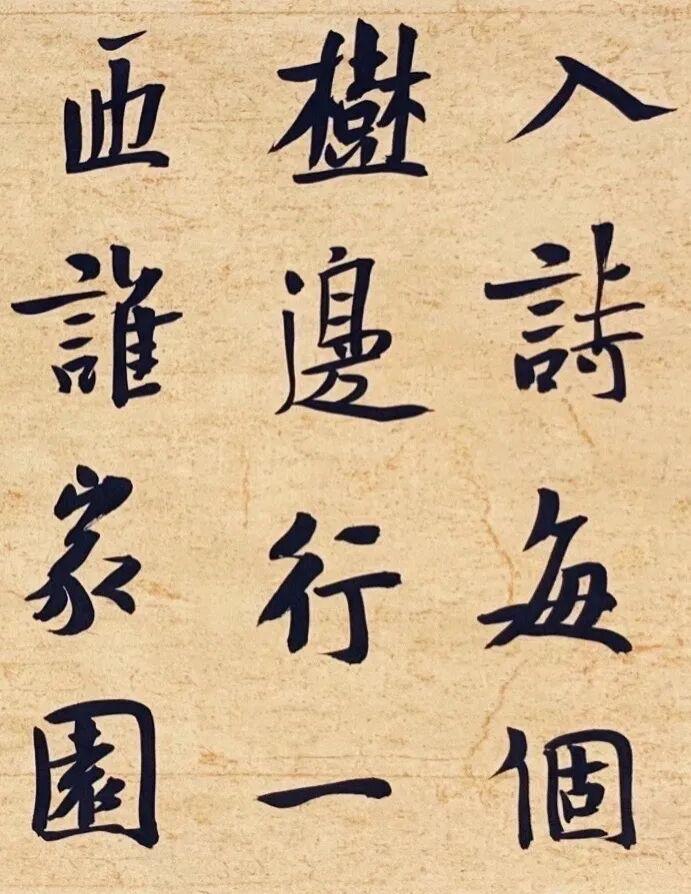 入詩每個
樹邊行一
西誰家園